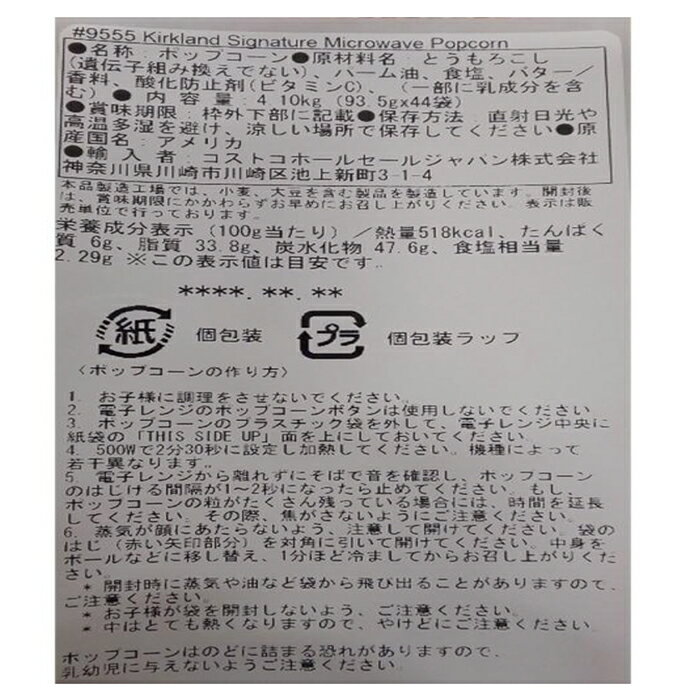 #9555 Kirkland Signature Microwave Popcorn
●名称：ポップコーン●原材料名：とうもろこし
(遺伝子組み換えでない)、パーム油、食塩、バター／
香料、酸化防止剤(ビタミンC)、(一部に乳成分を含
む) ● 内 容 量：4.10kg (93.5g×44袋)
●賞味期限：枠外下部に記載●保存方法：直射日光や
高温多湿を避け、涼しい場所で保存してください●原
産国名：アメリカ
●輸 入 者：コストコホールセールジャパン株式会社
神奈川県川崎市川崎区池上新町3-1-4
本品製造工場では、小麦、大豆を含む製品を製造しています。開封後
は、賞味期限にかかわらずお早めにお召し上がりください。表示は販
売単位で行っております。
栄養成分表示 (100g当たり) ／熱量518kcal、たんぱく
質 6g、脂質 33.8g、炭水化物 47.6g、食塩相当量
2.29g ※この表示値は目安です。
****.**.**
紙 個包装 プラ 個包装ラップ
〈ポップコーンの作り方〉
1. お子様に調理をさせないでください。
2. 電子レンジのポップコーンボタンは使用しないでください
3. ポップコーンのプラスチック袋を外して、電子レンジ中央に
紙袋の「THIS SIDE UP」面を上にしておいてください。
4. 500Wで2分30秒に設定し加熱してください。機種によって
若干異なります。
5. 電子レンジから離れずにそばで音を確認し、ポップコーン
のはじける間隔が1～2秒になったら止めてください。もし、
ポップコーンの粒がたくさん残っている場合には、時間を延長
してください。その際、焦がさないようにご注意ください。
6. 蒸気が顔にあたらないよう、注意して開けてください、袋の
はじ (赤い矢印部分) を対角に引いて開けてください、中身を
ボールなどに移し替え、1分ほど冷ましてからお召し上がりくだ
さい。
* 開封時に蒸気や油など袋から飛び出ることがありますので、
ご注意ください。
* お子様が袋を開封しないよう、ご注意ください。
* 中はとても熱くなりますので、やけどにご注意ください
ポップコーンはのどに詰まる恐れがありますので、
乳幼児に与えないようご注意ください。